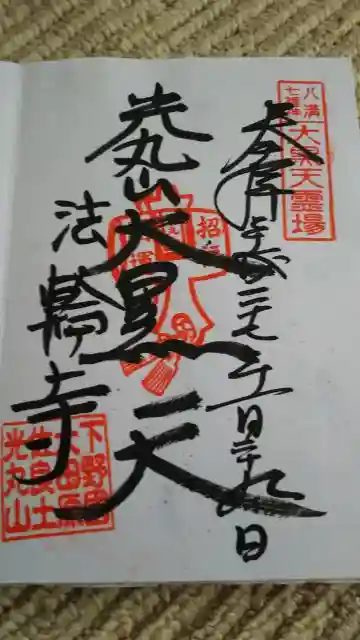 八溝
七福神
大黒天霊場
奉拝
平成二十七年
一日
二十九日
光丸山大黒天
招福
開運
法輪寺
下野国
大田原
佐良土
光丸山